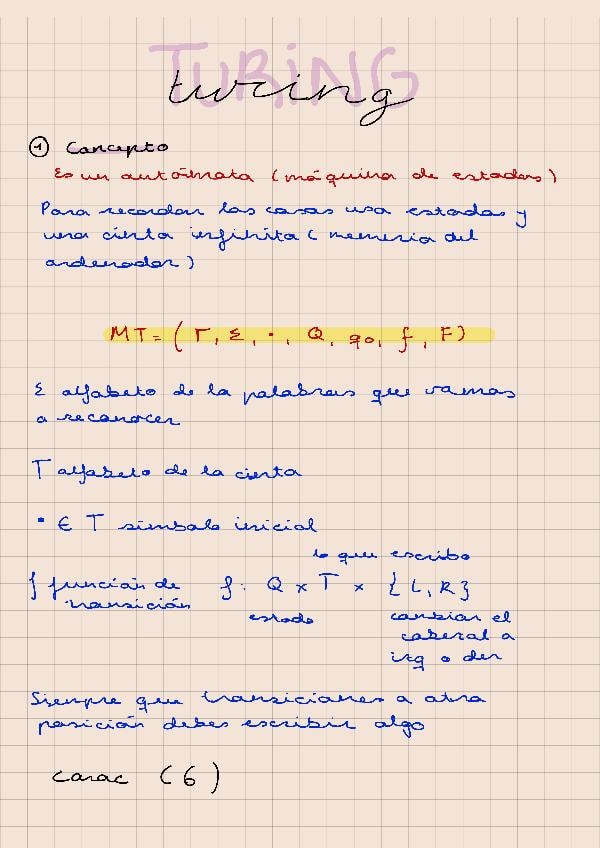 TURING
turing
1 Concepto
Es un autómata (máquina de estados)
Para recordar las cosas usa estados y
una cinta infinita (memoria del
ordenador)
MT = (Γ, Σ, •, Q, q0, f, F)
Σ alfabeto de la palabras que vamos
a reconocer
T alfabeto de la cinta
• ∈ T símbolo inicial
lo que escribo
f función de transición f: Q x T x {L, R}
estado cambiar el
cabezal a
izq o der
Siempre que transiciones a otra
posición debes escribir algo
carac (6)